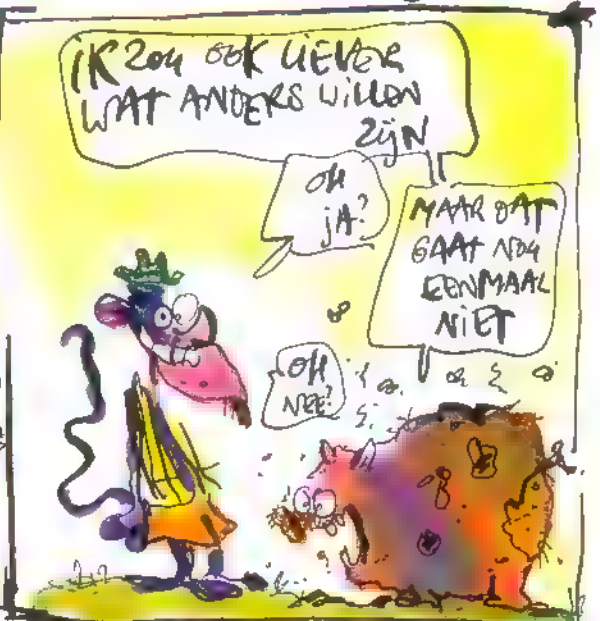 iK ZOU OOK LiEVER
WAT ANDERS WiLLEN
ZijN
OH
jA?
MAAR DAT
GAAT NOU
EENMAAL
NiET
OH
NEE?